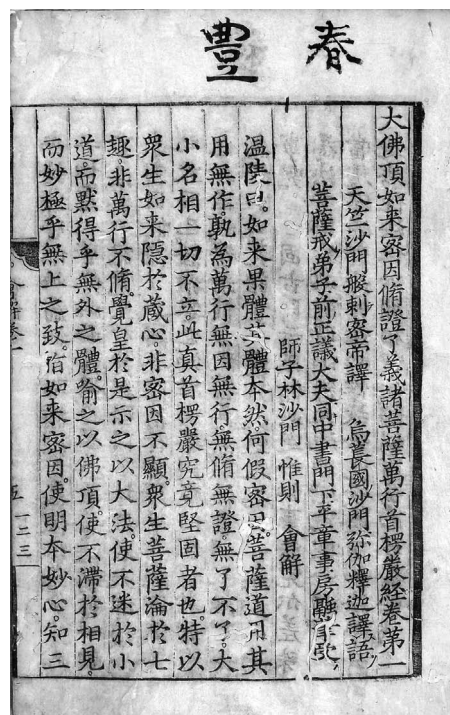 春豊
大佛頂如来密因脩證了義諸菩薩萬行首楞嚴経卷第一
天竺沙門般剌密帝譯　烏萇國沙門弥伽釋迦譯語
菩薩戒弟子前正議大夫同中書門下平章事房融筆受
師子林沙門　惟則　會解
温陵曰。如来果體其體本然。何假密因。菩薩道用其
用無作。孰為萬行無因無行。無脩無證。無了不了。大
小名相一切不立。此真首楞嚴究竟堅固者也。特以
衆生如来隱於蔵心。非密因不顯。衆生菩薩淪於七
趣。非萬行不脩。覺皇於是示之以大法。使不迷於小
道。而默得乎無外之體。喻之以佛頂。使不滞於相見。
而妙極乎無上之致。指如来密因。使明本妙心。知三
會解卷一
五
一二三